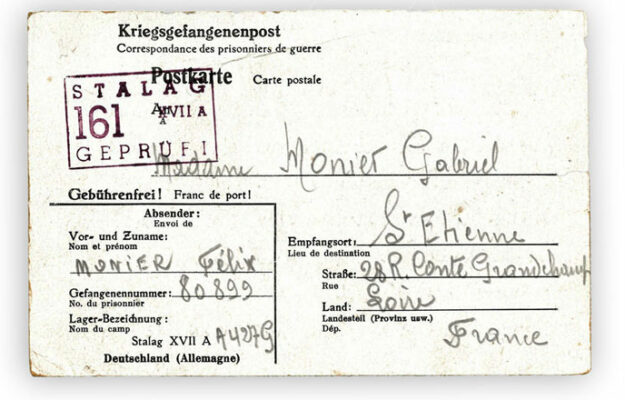 Kriegsgefangenenpost
Correspondance des prisonniers de guerre
Postkarte Carte postale
STALAG
161 XVII A
GEPRÜFT
An
Madame Monier Gabriel
Gebührenfrei! Franc de port!
Absender:
Envoi de
Vor- und Zuname:
Nom et prénom
MONIER Félix
Gefangenennummer: 80899
No. du prisonnier
Lager-Bezeichnung:
Nom du camp
Stalag XVII A A427G
Deutschland (Allemagne)
Empfangsort: St Etienne
Lieu de destination
Straße: 28 R. Conte Grandchamp
Rue
Land: Loire
Landesteil (Provinz usw.)
Dép.
France